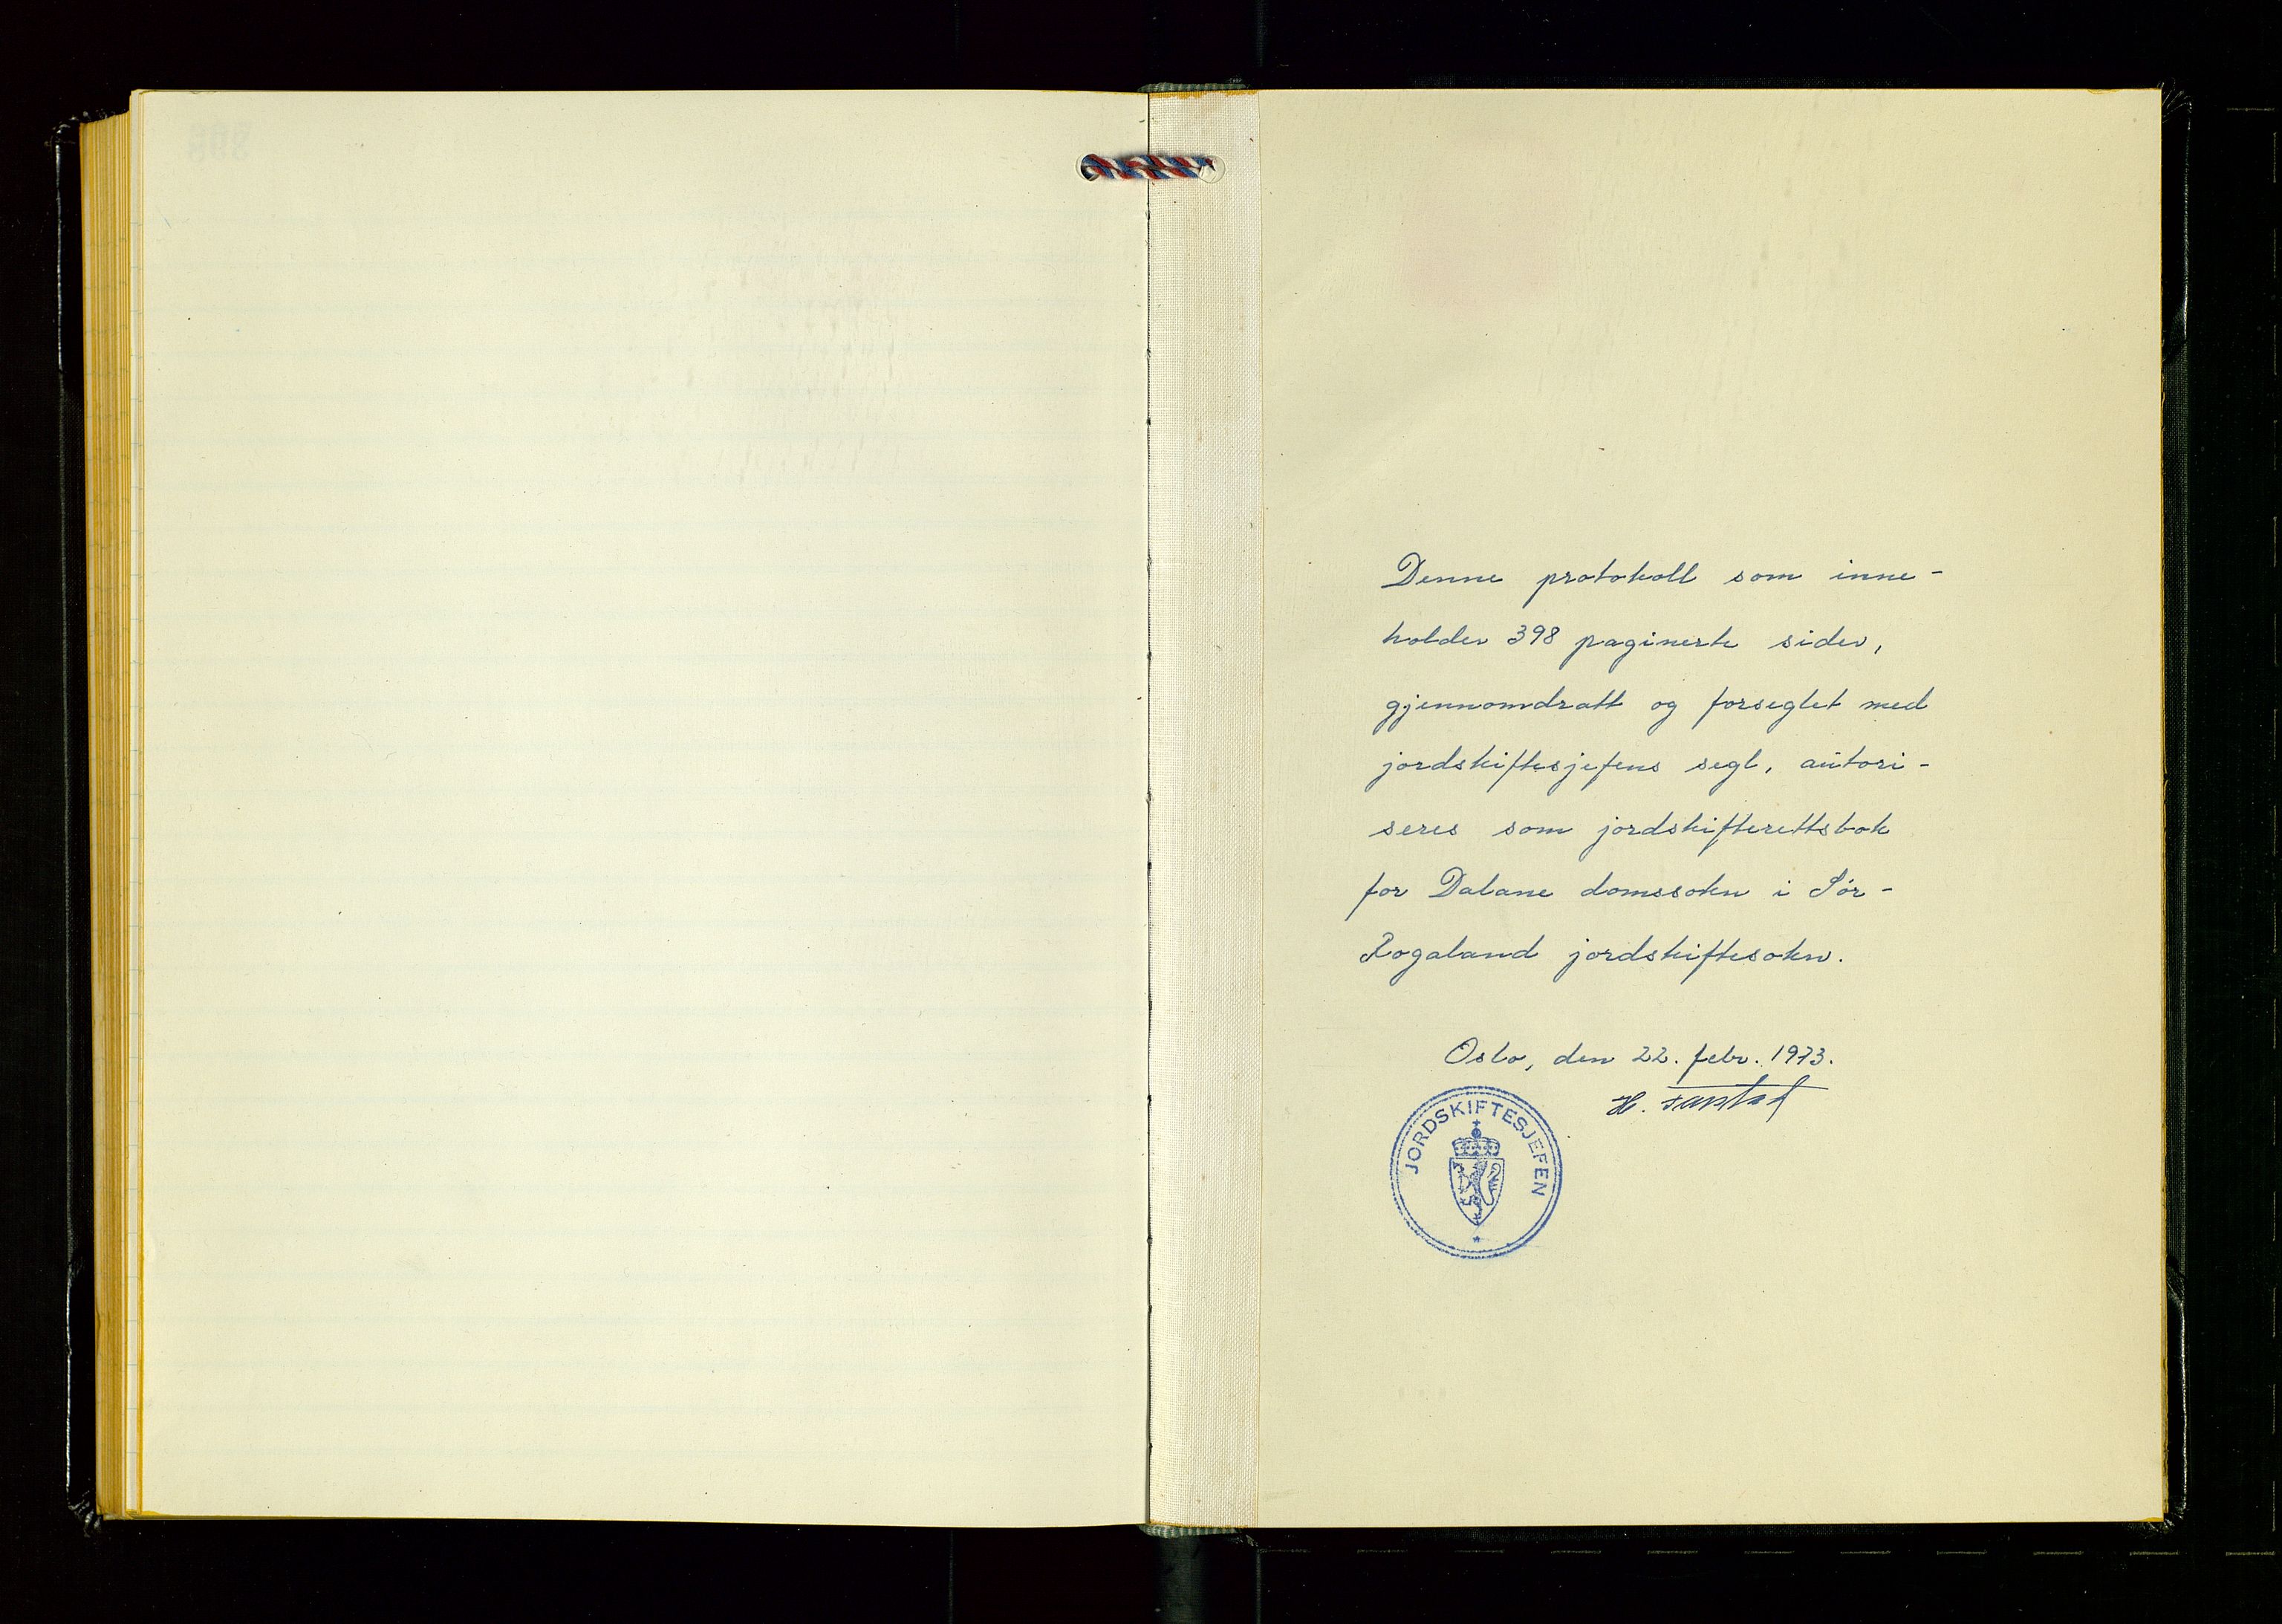 Denne protokoll som inne-
holder 398 paginerte sider,
gjennomdratt og forseglet med
jordskiftesjefens segl, autori-
seres som jordskifterettsbok
for Dalane domssokn i Sör-
Rogaland jordskiftesokn.
Oslo, den 22. febr. 1973.
H.
JORDSKIFTESJEFEN